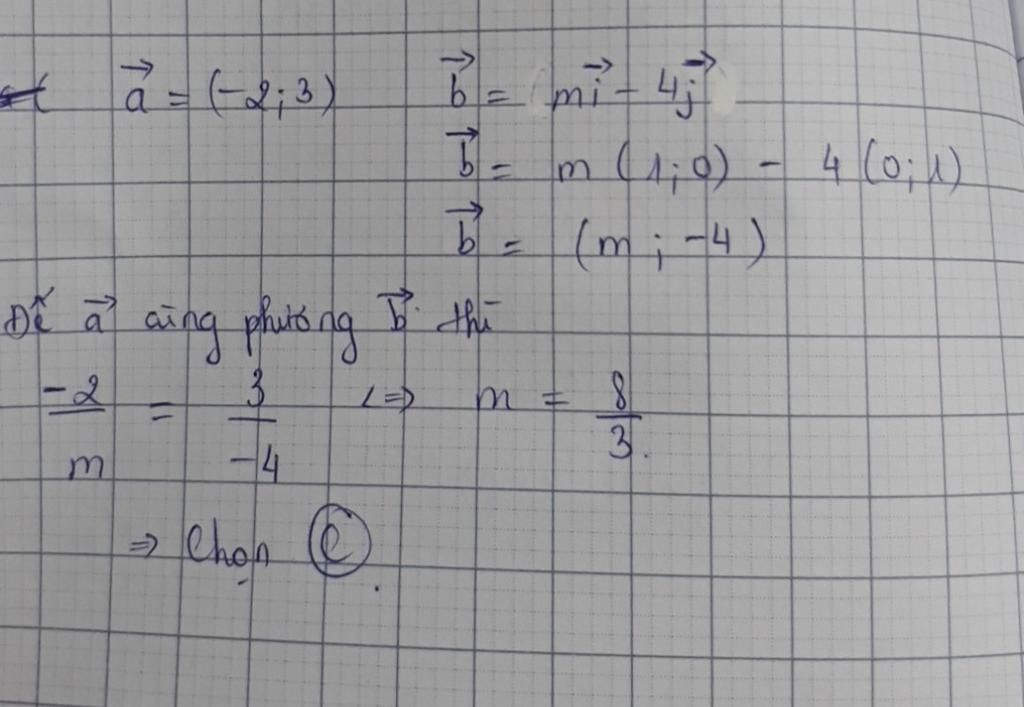 a⃗ = (-2; 3) b⃗ = mi⃗ - 4j⃗
b⃗ = m (1; 0) - 4 (0; 1)
b⃗ = (m ; -4)
Để a⃗ cùng phương b⃗ thì
-2/m = 3/-4 <=> m = 8/3.
=> Chọn C.